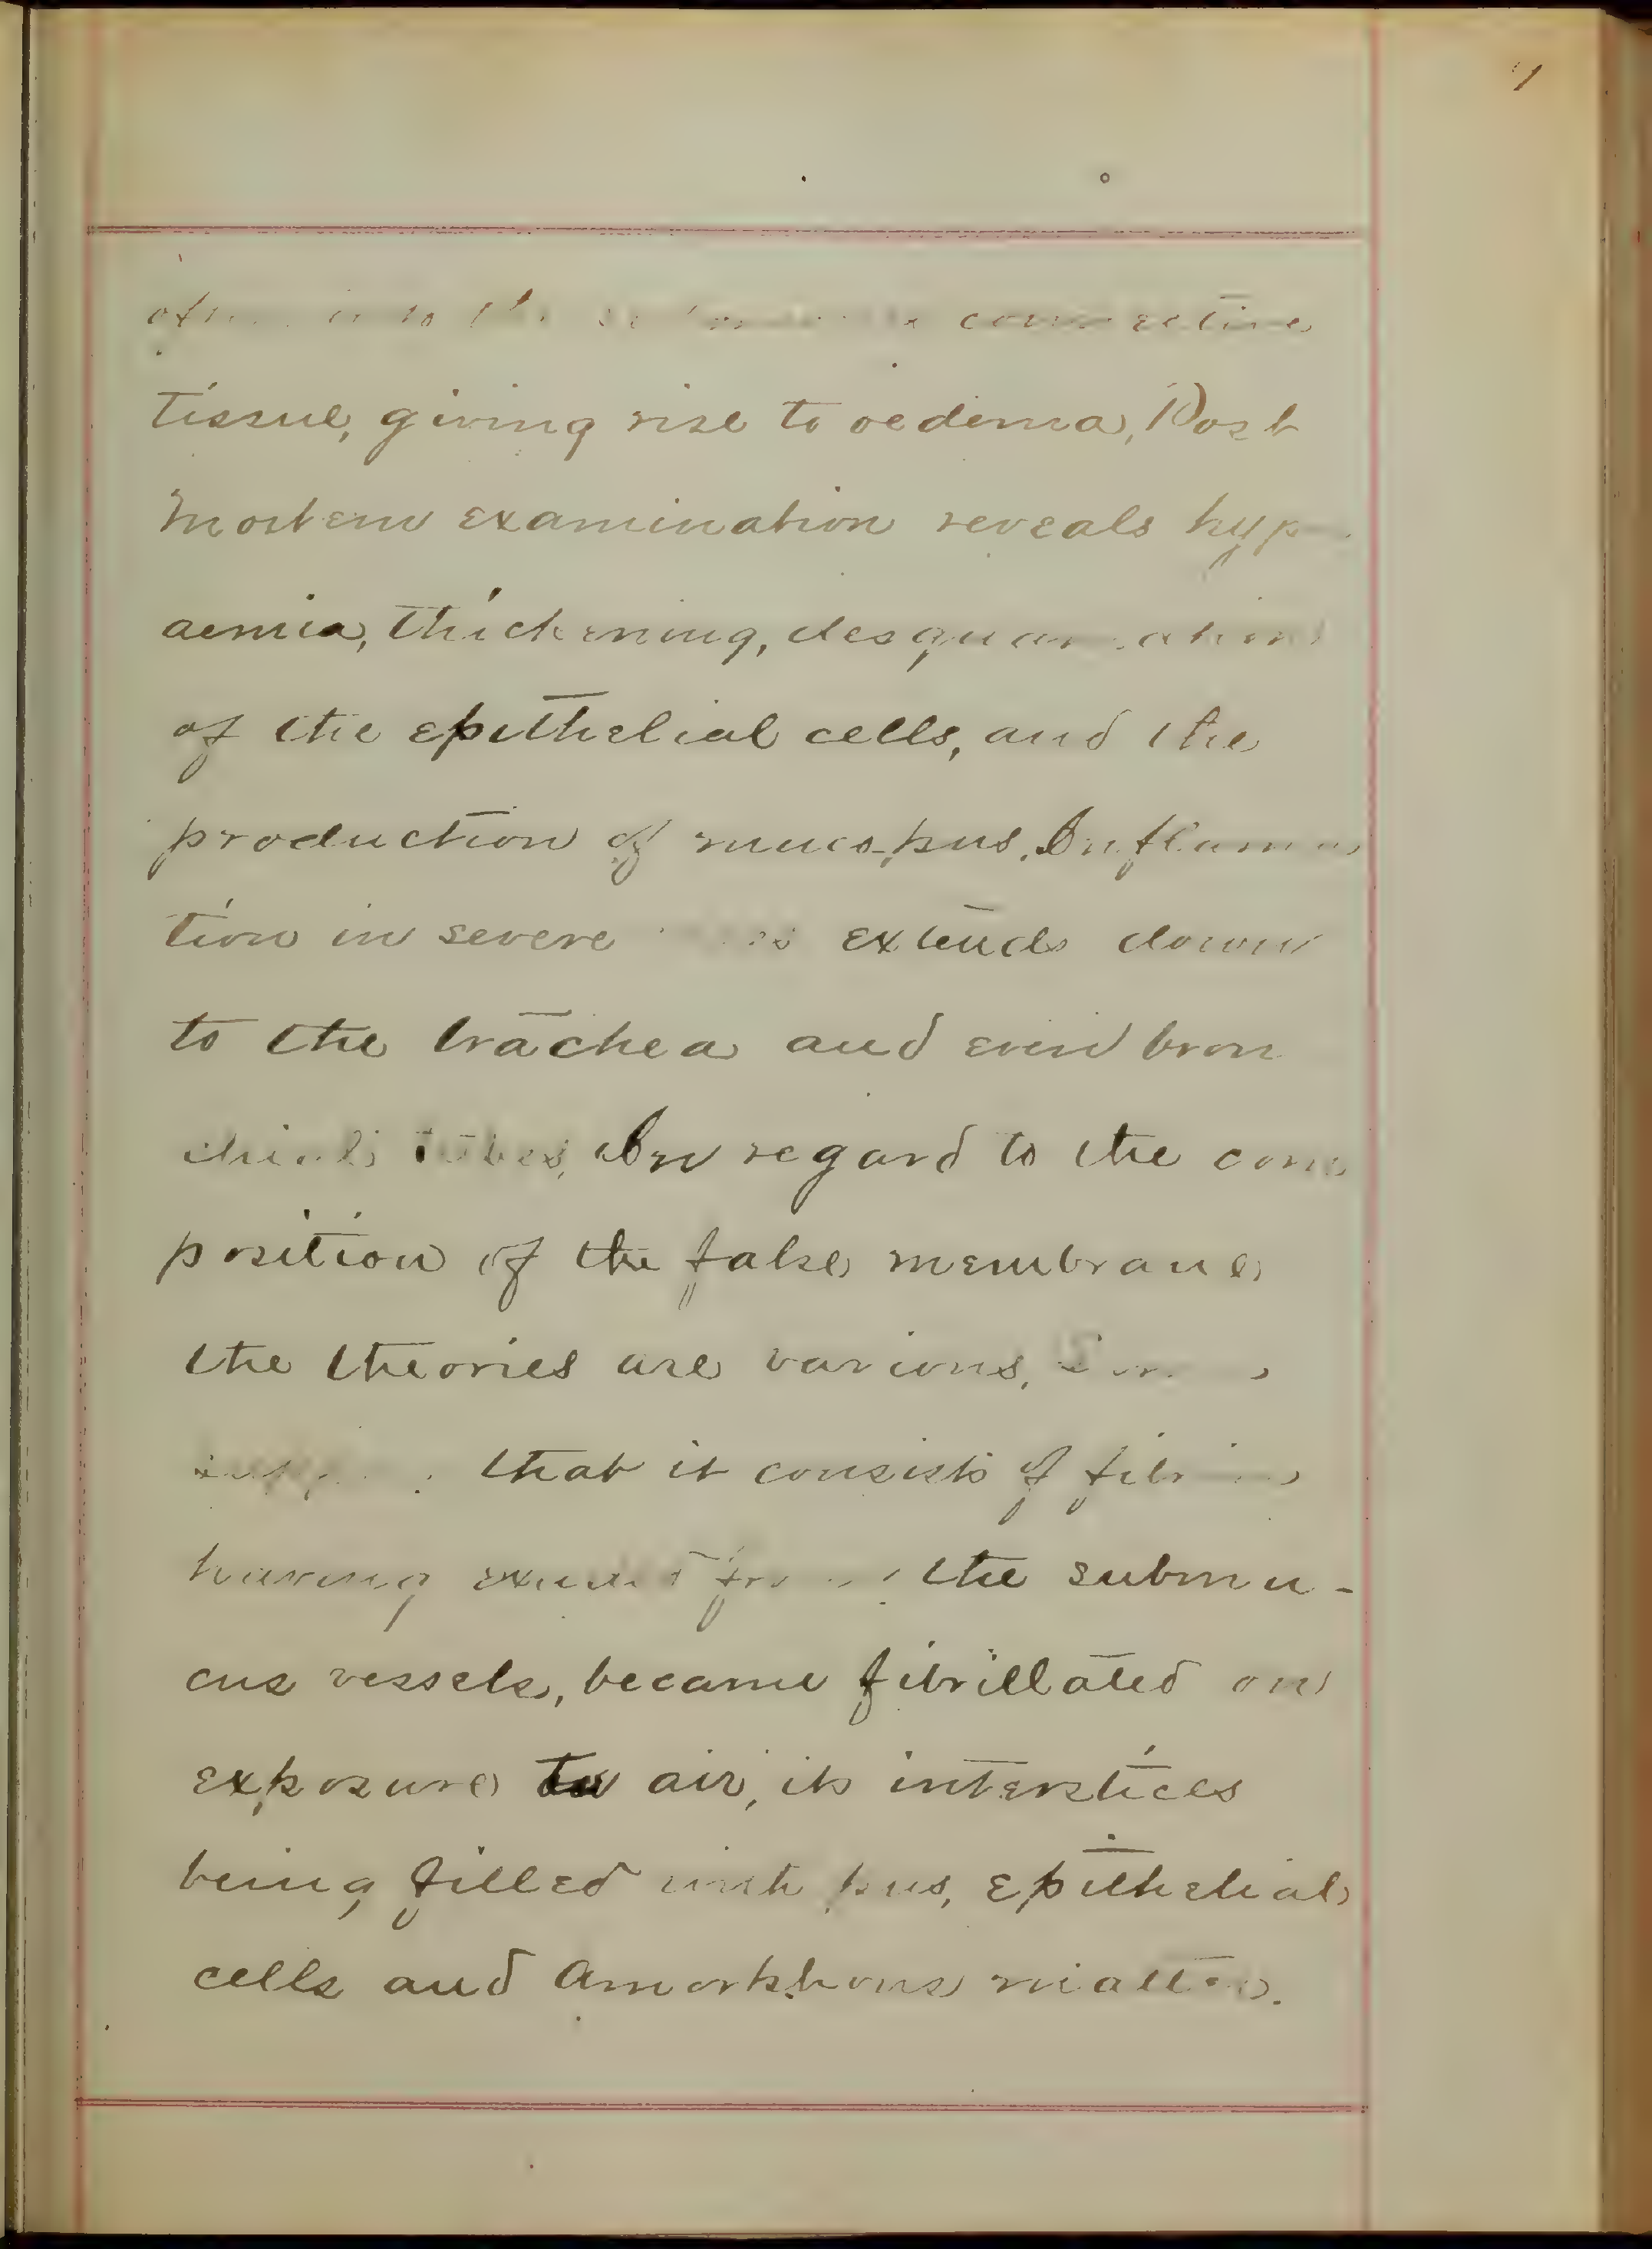 connective
tissue, giving rise to oedema, Post
mortem examination reveals hyp
aemia, thickening, desquamation
of the epithelial cells, and the
production of muco-pus. Inflamma
tion in severe extends down
to the trachea and even bron
chial tubes, In regard to the com
position of the false membrane
the theories are various,
that it consists of fibrin
having exuded from the submu-
cus vessels, became fibrillated on
exposure to air, its interstices
being filled with pus, epithelial
cells and amorphous matter.